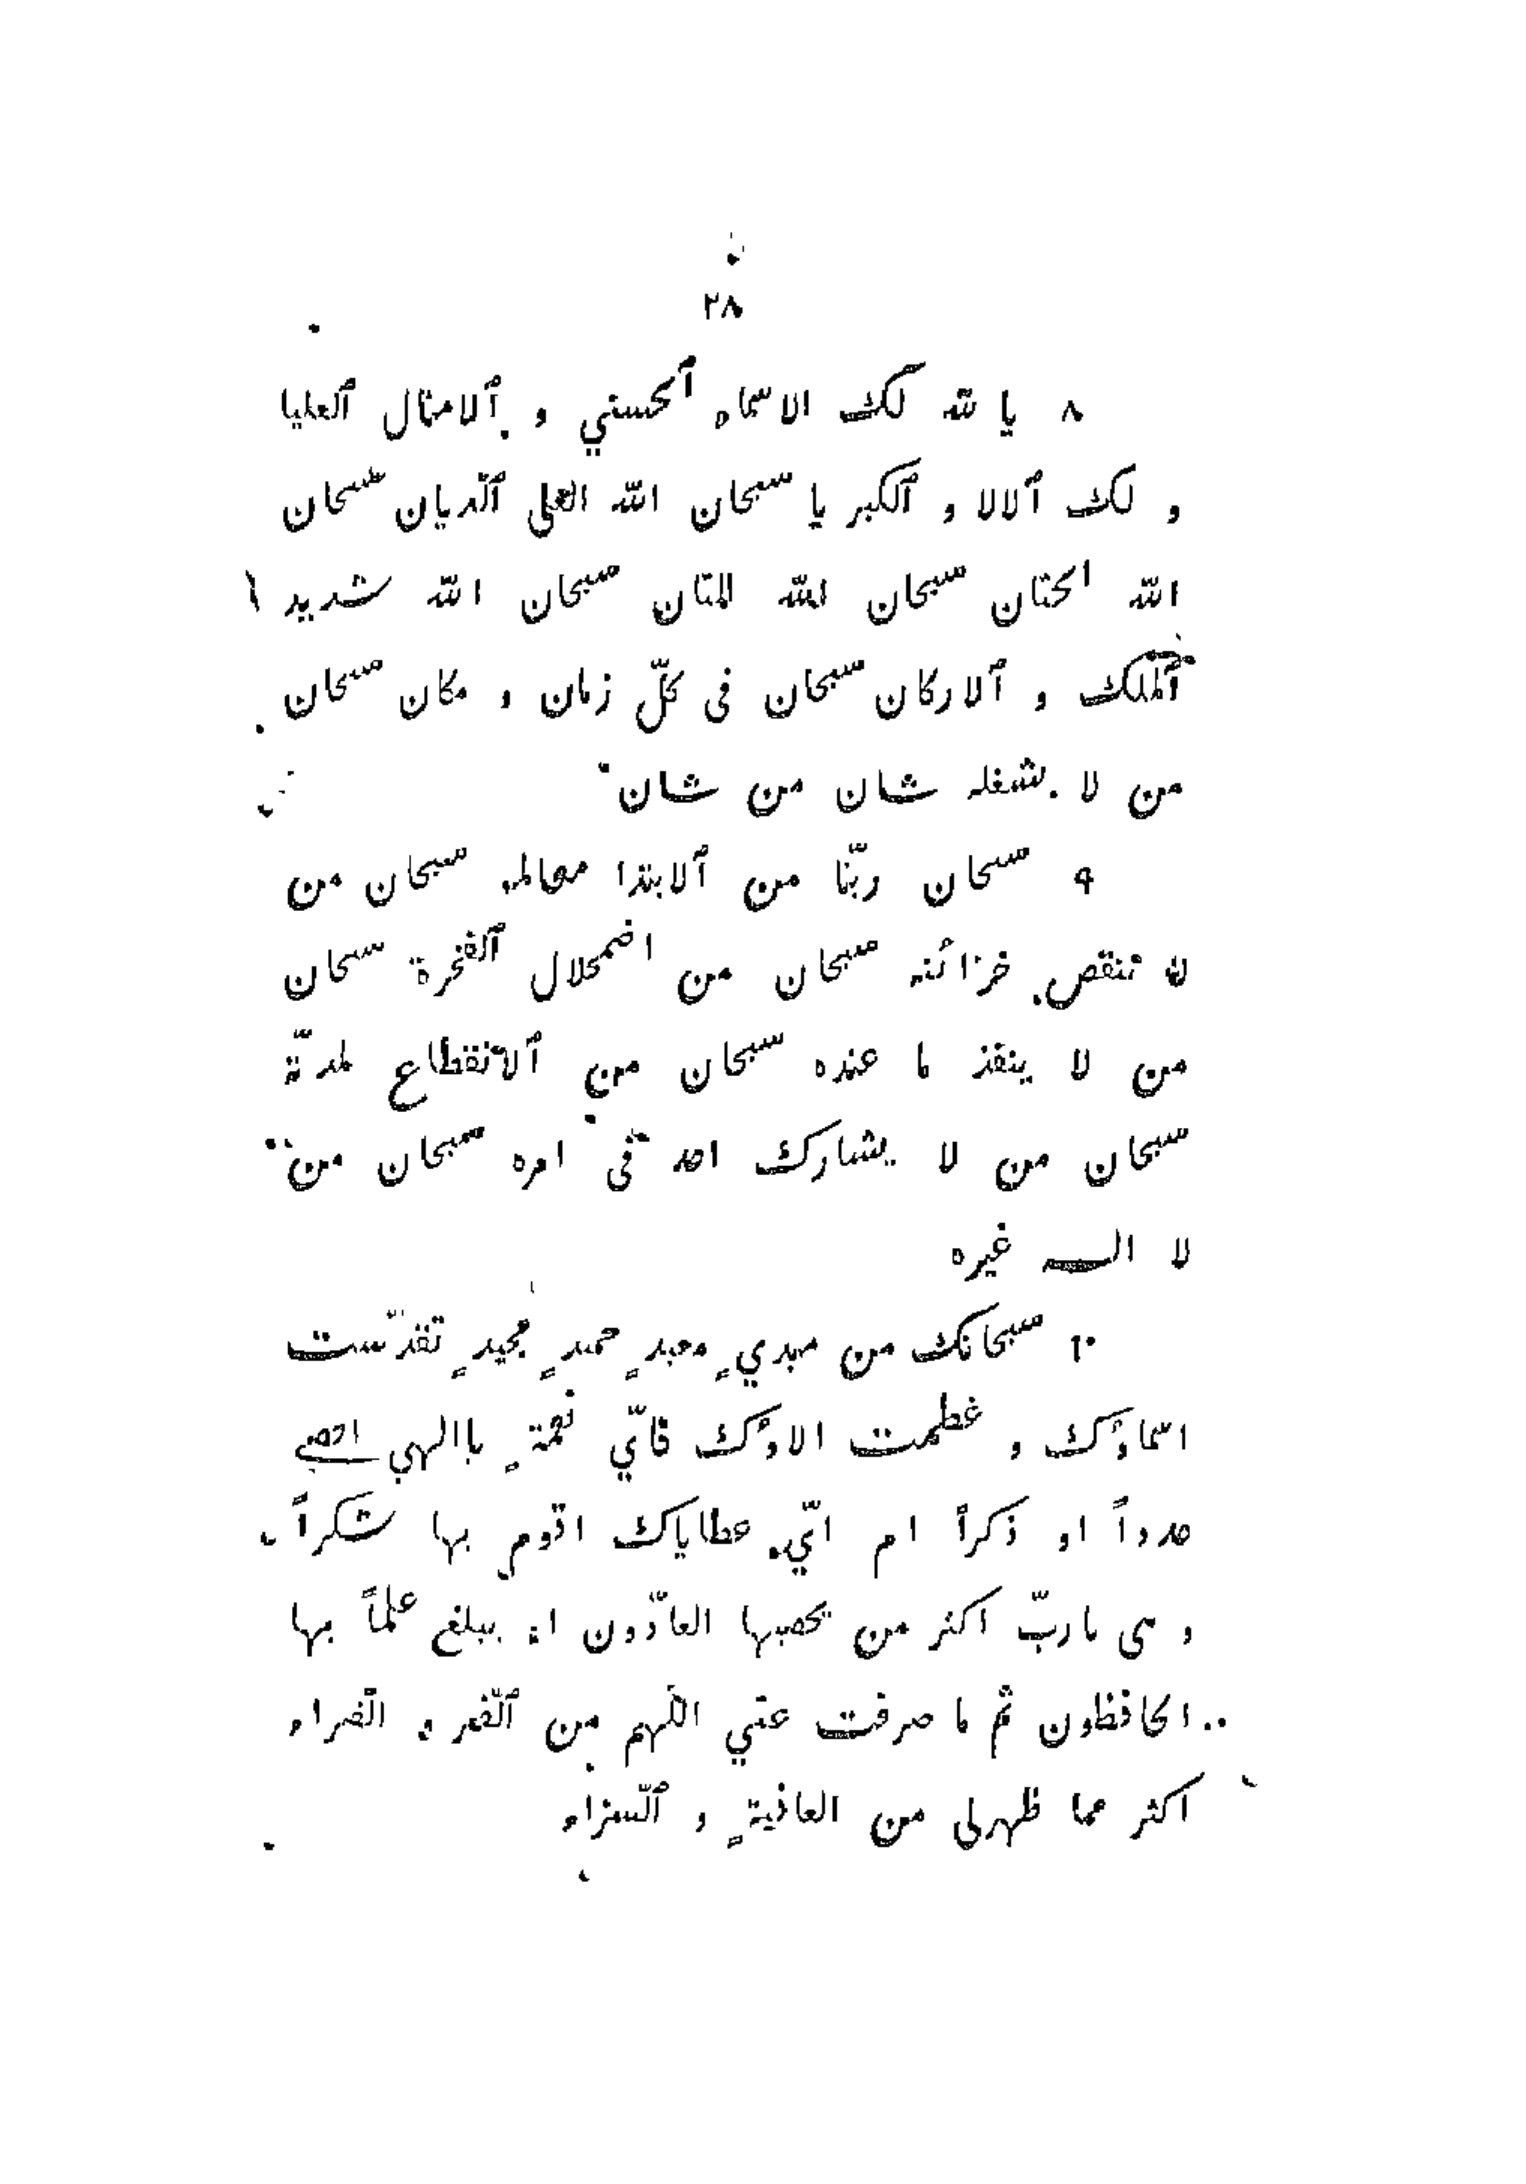 ٢٨
٨ يا لله لك الاسماء ٱلحسني و ٱلامثال ٱلعليا
و لك ٱلالا و ٱلكبر يا سبحان الله العلى ٱلّديان سبحان
الله الحنّان سبحان الله المنّان سبحان الله شديد
ٱلملك و ٱلاركان سبحان فى كلّ زمان و مكان سبحان
من لا يشغله شان من شان
٩ سبحان ربّنا من ٱلابتدا معالمه سبحان من
لا تنقص خزائنه سبحان من اضمحلال ٱلفخرة سبحان
من لا ينفذ ما عنده سبحان من ٱلانقطاع لمدّته
سبحان من لا يشارك احد فى امره سبحان من
لا اله غيره
١٠ سبحانك من مبديٍ معيدٍ حميدٍ مجيدٍ تقدّست
اسماؤك و عظمت الاؤك فايّ نعمةٍ ياالهي احصي
عدداً او ذكراً ام ايّ عطاياك اقوم بها شكراً
و هى ياربّ اكثر من يحصيها العادّون او يبلغ علماً بها
الحافظون ثم ما صرفت عنّي اللّهم من ٱلّضر و الّضراء
اكثر مما ظهرلى من العافيةٍ و ٱلّسراء